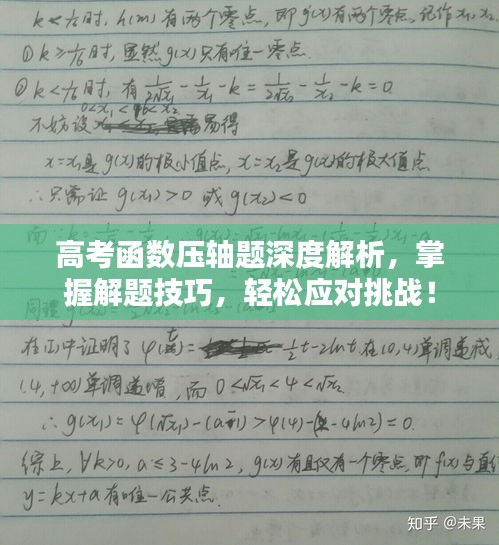 k<1/16时, h(m)有两个零点, 即g'(x)有两个零点, 记作x₁, x₂.
① k≥1/16时, 显然g(x)只有唯一零点.
② k<1/16时, 有 1/(2√x₁) - 1/x₁ - k = 1/(2√x₂) - 1/x₂ - k = 0
0<x₁<16<x₂
不妨设 易得
x=x₁是g(x)的极小值点, x=x₂是g(x)的极大值点
∴只需证 g(x₁)>0 或 g(x₂)<0
高考函数压轴题深度解析，掌
握解题技巧，轻松应对挑战！
同理
在(1)中证明了 φ(t)= 1/2t-2lnt 在(0,4)单调递减
(4,+∞)单调递增, 而 0<√x₁<4<√x₂
∴g(x₁)=φ(√x₁)-(a-1)>φ(4)- -4ln2)=0.
综上, ∀k>0, a≤3-4ln2, g(x)有且仅有一个零点, 即f(x)与直线
y=kx+a有唯一公共点.
知乎 @未果